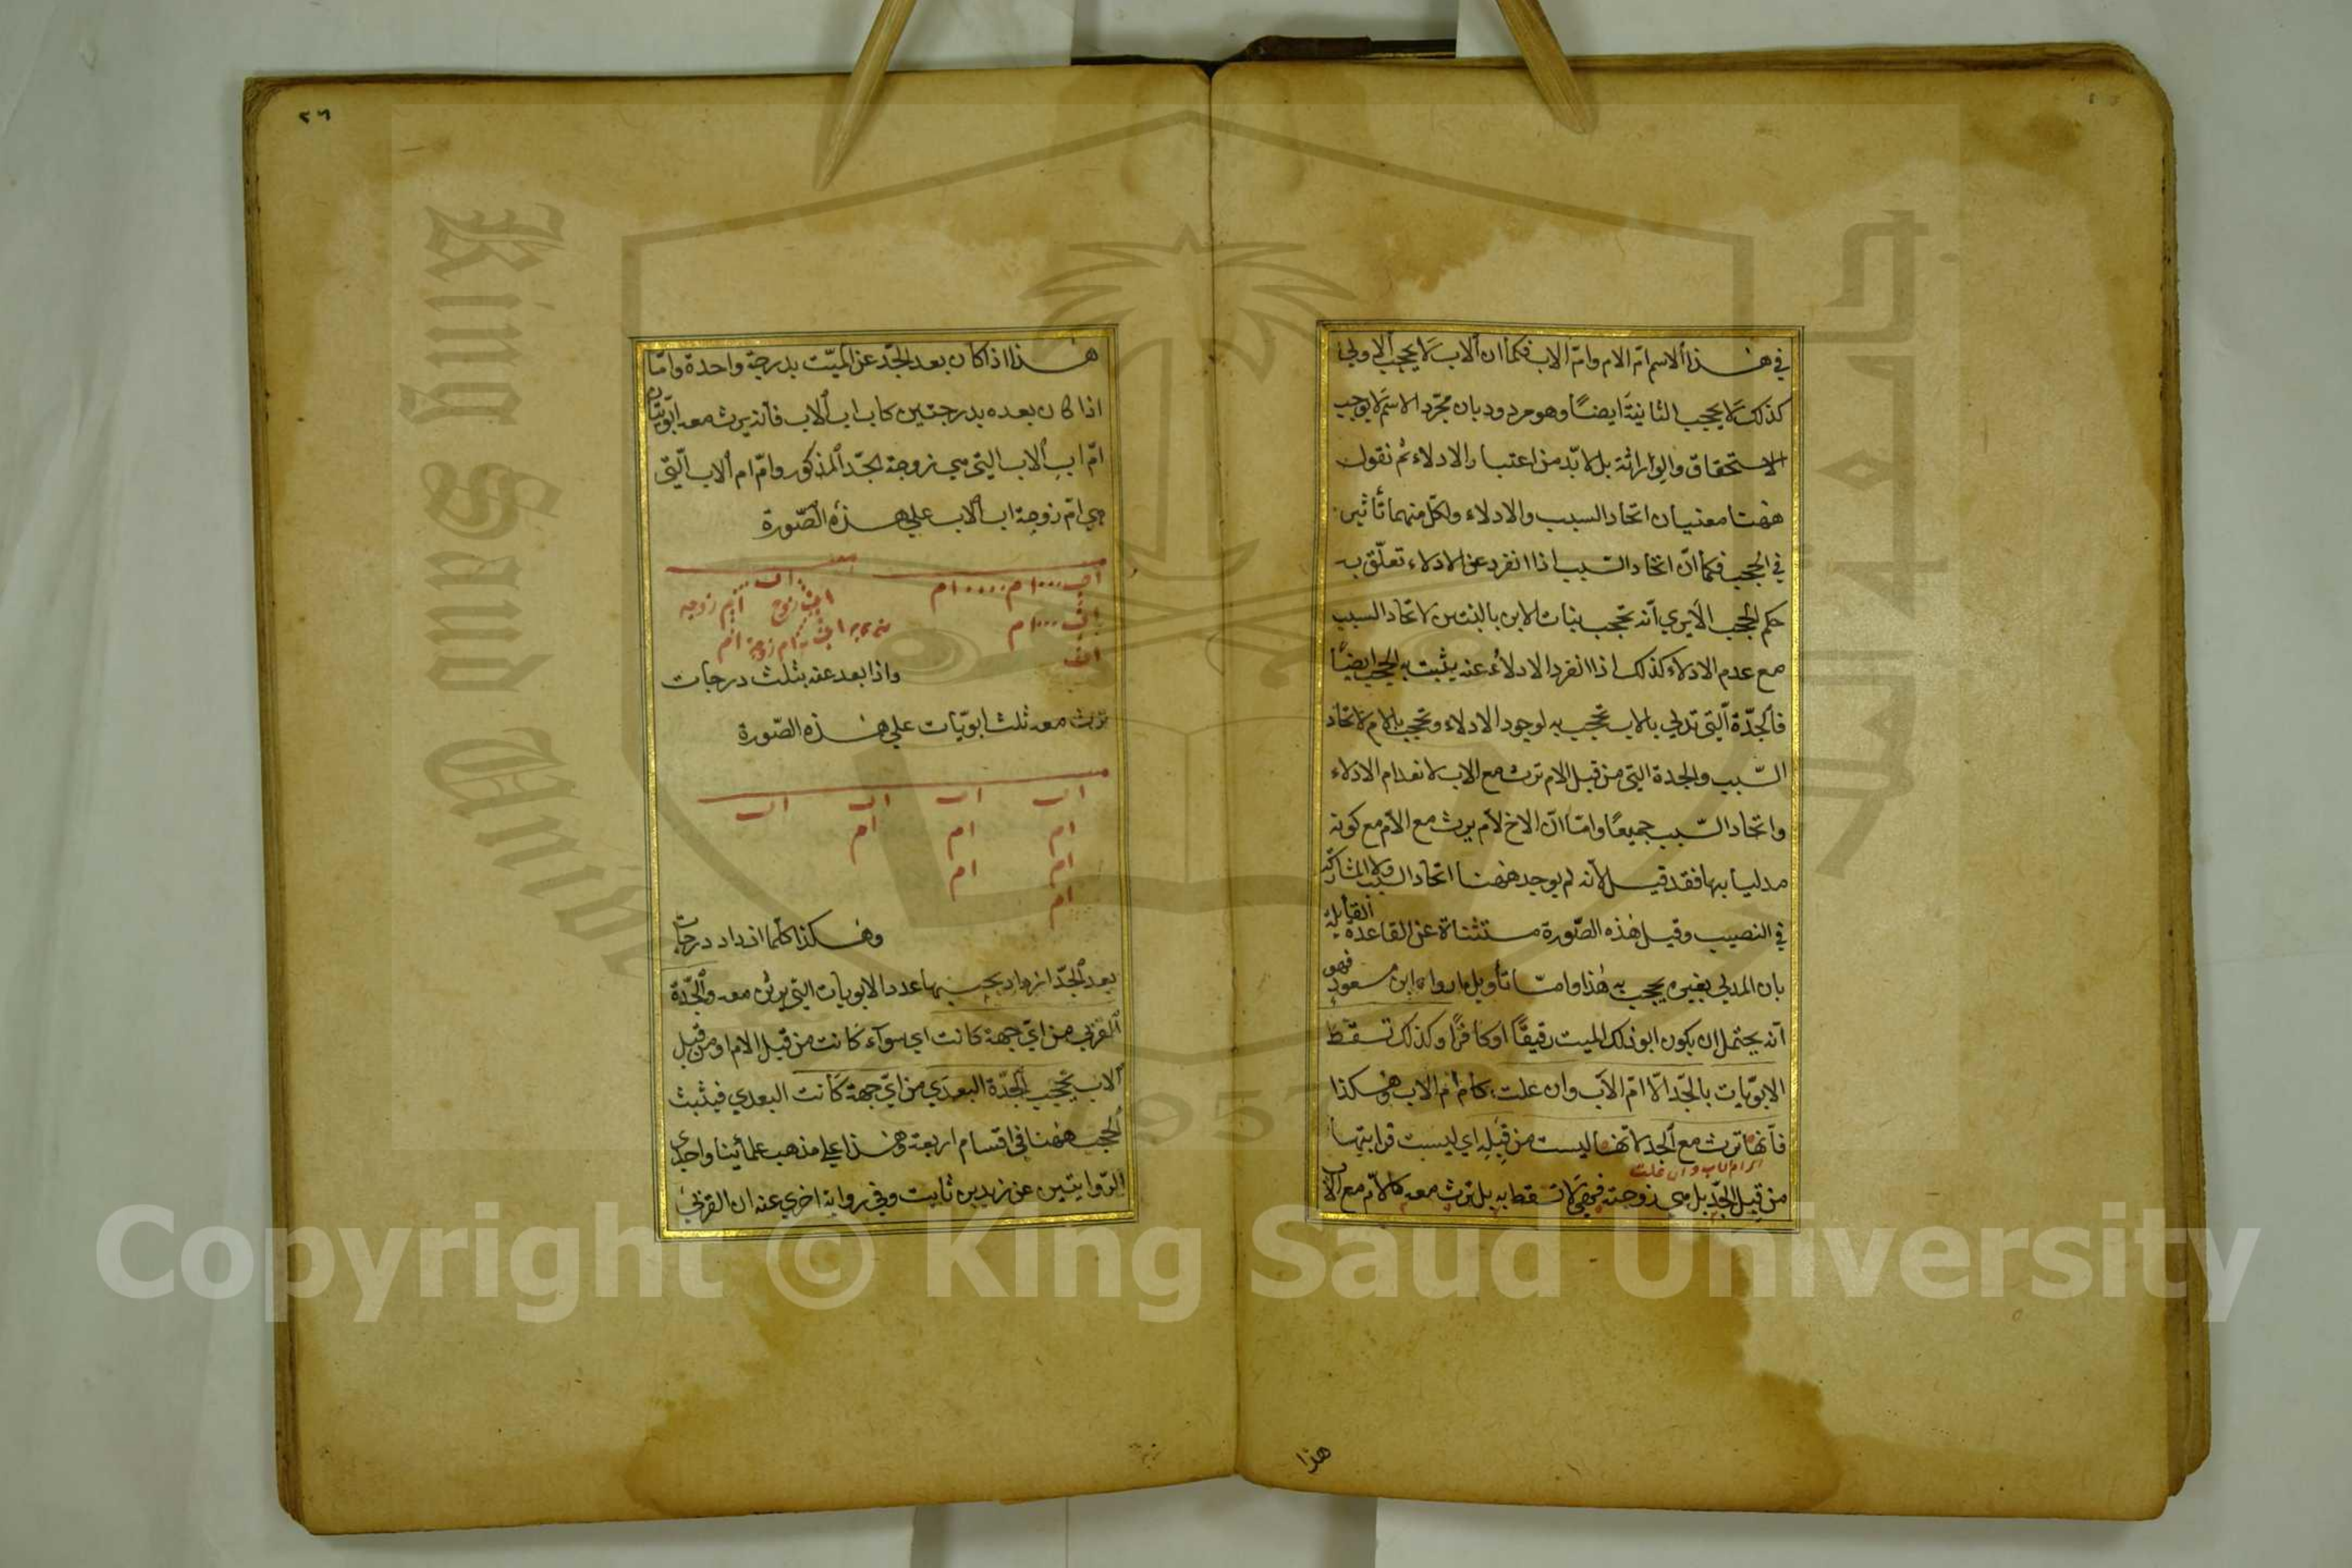 في هذا الاسم ام الام وام الاب فكما ان الاب لا يحجب الاولى
كذلك لا يحجب الثانية ايضًا وهو مردود بان مجرّد الاسم لا يوجب
الاستحقاق والوراثة بل لا بدّ من اعتبار الادلاء ثم نقول
ههنا معنيان اتحاد السبب والادلاء ولكل منهما تأثير
في الحجب فكما انّ اتحاد السّبب اذا انفرد عن الادلاء تعلّق به
حكم الحجب الا يرى انه تحجب بنات الابن بالبنتين لاتحاد السبب
مع عدم الادلاء كذلك اذا انفرد الادلاء عنه يثبت به الحجب ايضًا
فالجدّة الّتي تدلي بالاب تحجب به لوجود الادلاء وتحجب بالام لاتحاد
السّبب والجدة التي من قبل الام ترث مع الاب لانعدام الادلاء
واتحاد السّبب جميعًا وامّا انّ الاخ لام يرث مع الام مع كونه
مدليا بها فقد قيل لانه لم يوجد ههنا اتحاد السبب ولا المشاركة
في النصيب وقيل هذه الصّورة مستثناة عن القاعدة القائلة
بان المدلي بغيره يحجب به هذا وامّا تأويل ما رواه ابن مسعود فهو
انّه يحتمل ان يكون ابو ذلك الميت رقيقًا او كافرًا وكذلك تسقط
الابويّات بالجدّ الّا امّ الاب وان علت كام ام الاب وهكذا
فانّها ترث مع الجد لانها ليست من قِبَلِه اي ليست قرابتها
ام ام الاب وان علت
من قِبل الجدّ بل هي زوجته فهي لا تسقط به بل ترث معه كالام مع الاب
هذا
٢٦
هذا اذا كان بعد الجّد عن الميّت بدرجة واحدة وامّا
اذا كان بعده بدرجتين كاب اب الاب فانه يرث معه ابويتان
امّ اب الاب التي هي زوجة الجّد المذكور وامّ ام الاب الّتي
هي امّ زوجة اب الاب على هذه الصّورة
اب ... ام .... ام
اب ... ام
اب
واذا بعد عنه بثلث درجات
ترث معه ثلث ابويّات على هذه الصّورة
اب اب اب اب
ام ام ام
ام ام
ام
وهكذا كلّما ازداد درجات
بعد الجدّ ازداد بحسبها عدد الابويات التي يرثن معه والجدّة
القربى من ايّ جهة كانت اي سواء كانت من قبل الام او من قبل
الاب تحجب الجدّة البعدى من ايّ جهة كانت البعدى فيثبت
الحجب ههنا في اقسام اربعة وهذا على مذهب علمائنا واحدى
الرّوايتين عن زيد بن ثابت وفي رواية اخرى عنه ان القربى
Copyright © King Saud University